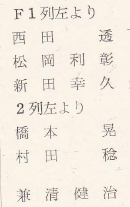 F1列左より
西田透
松岡利彰
新田幸久
2列左より
橋本晃
村田稔
兼清健治